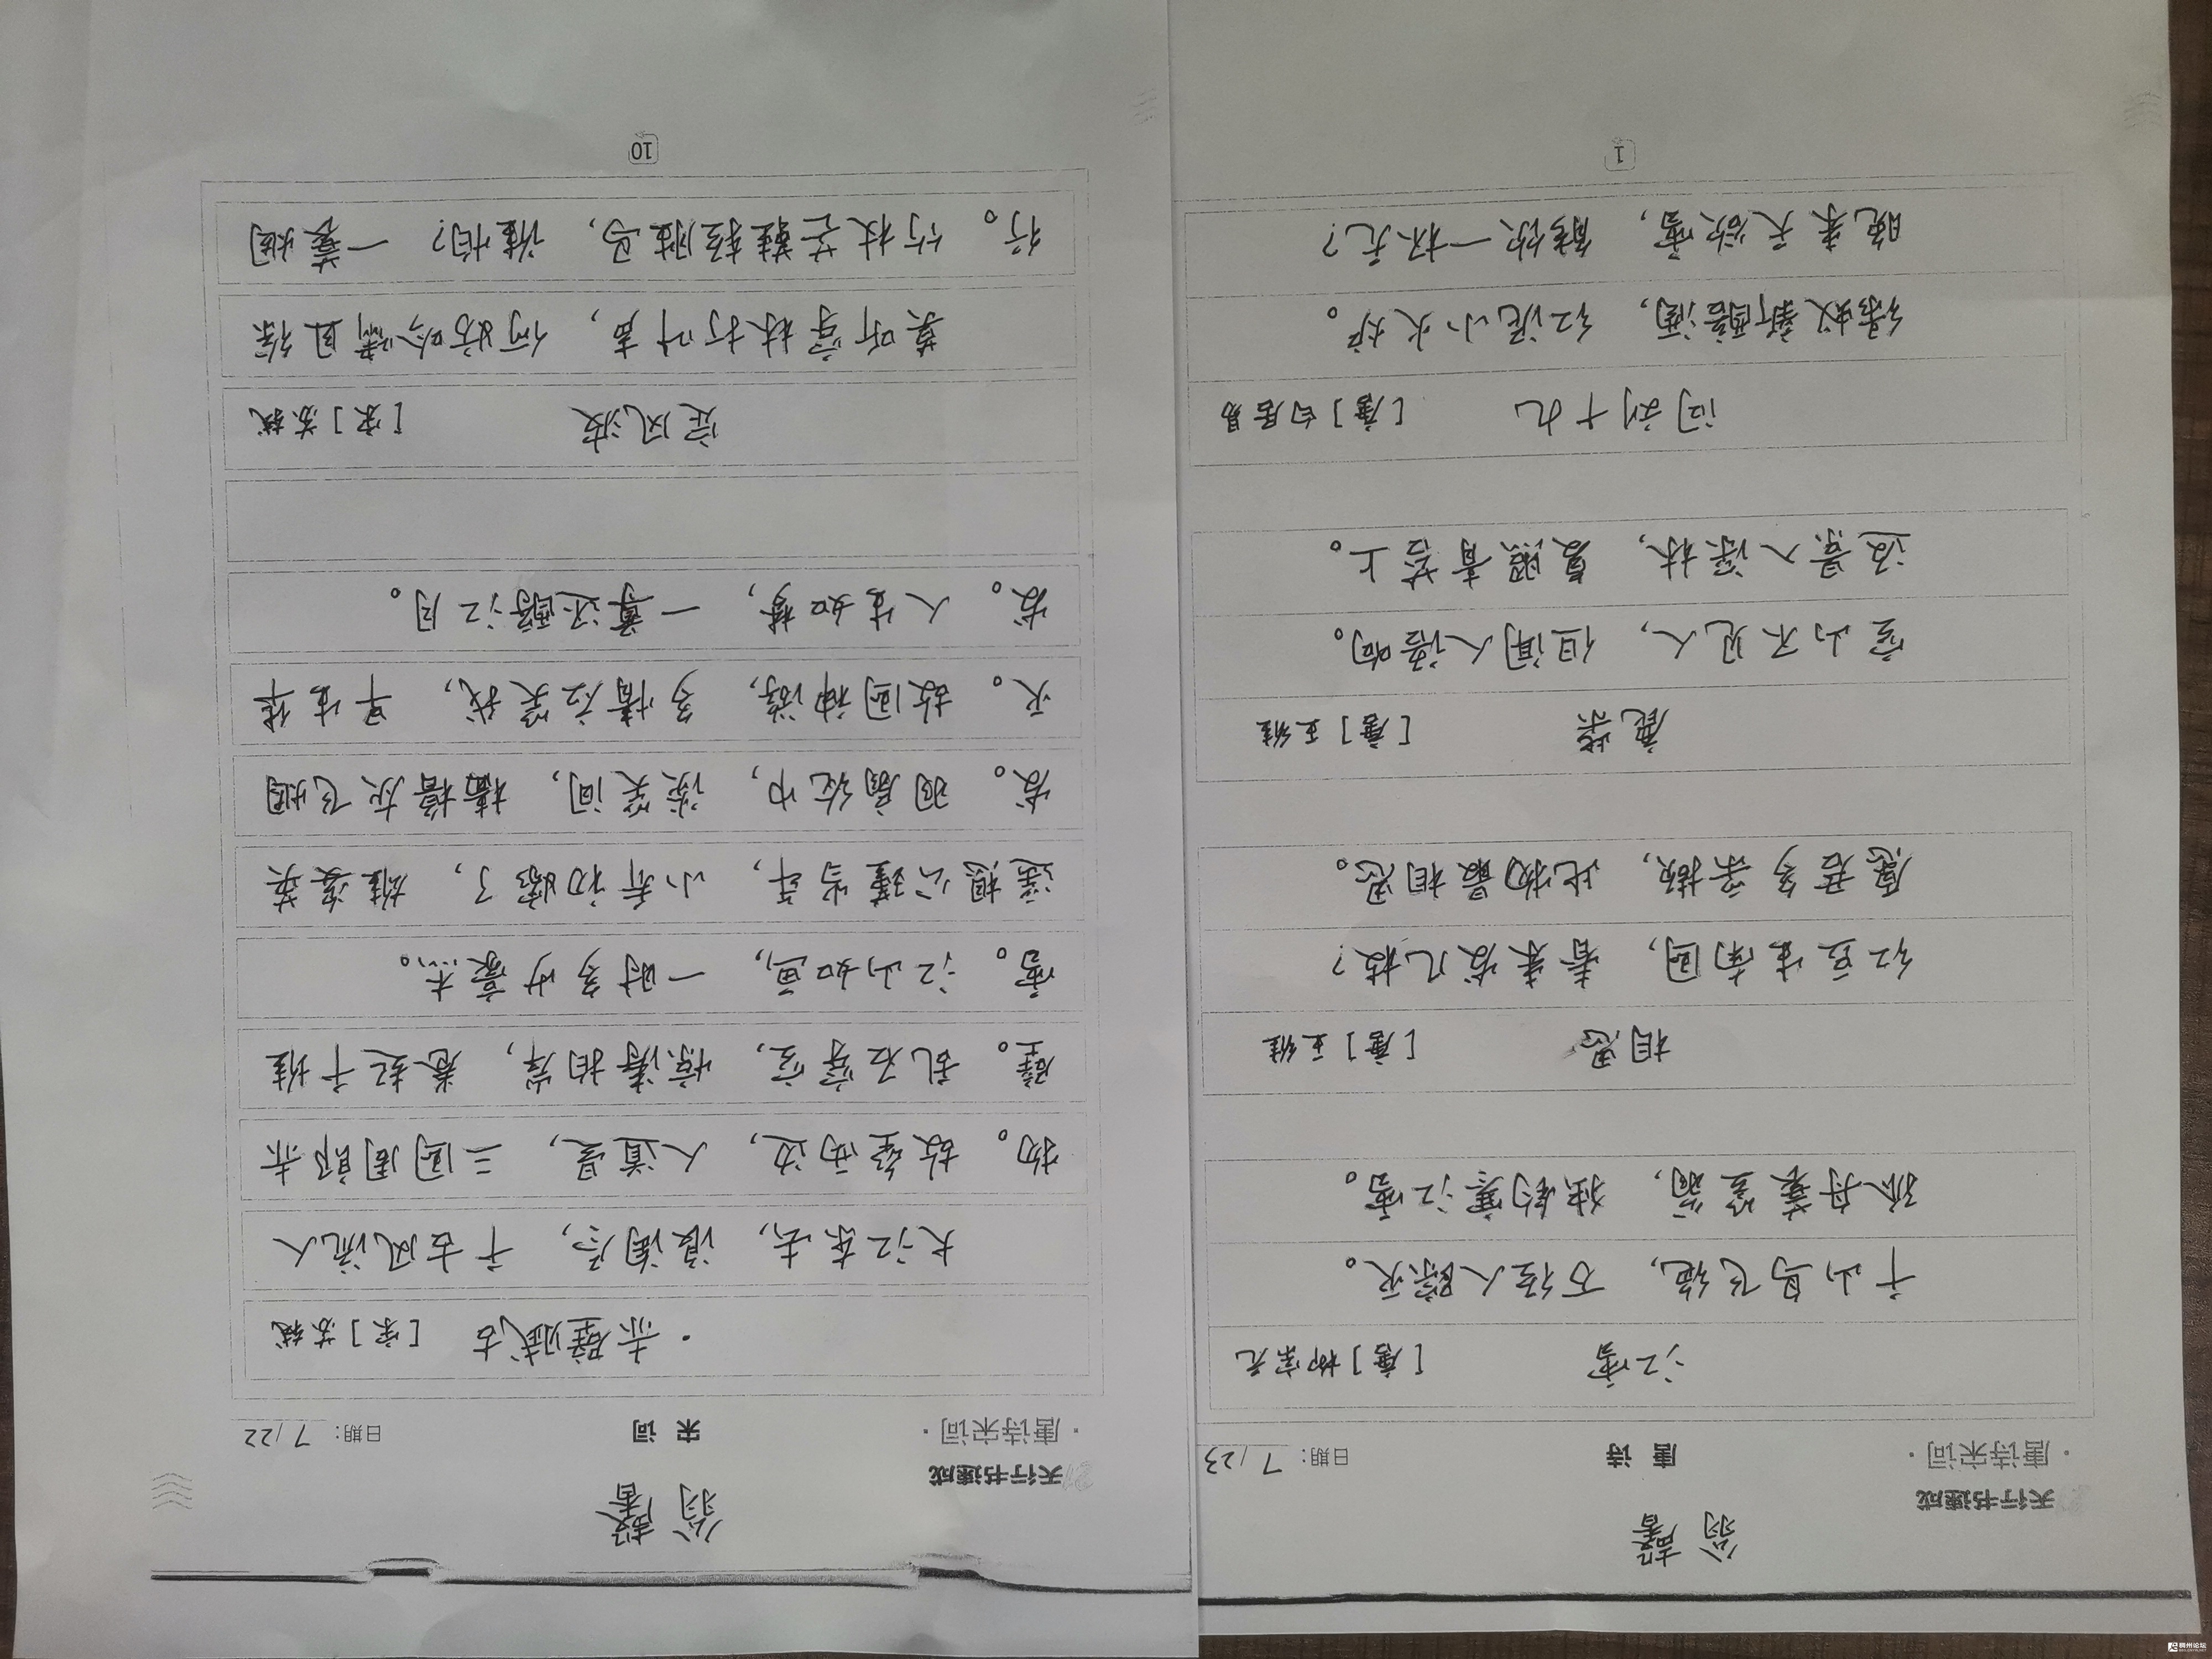 翁馨
天行书速成
·唐诗宋词· 唐诗 日期: 7/23
江雪 [唐]柳宗元
千山鸟飞绝,万径人踪灭。
孤舟蓑笠翁,独钓寒江雪。
相思 [唐]王维
红豆生南国,春来发几枝?
愿君多采撷,此物最相思。
鹿柴 [唐]王维
空山不见人,但闻人语响。
返景入深林,复照青苔上。
问刘十九 [唐]白居易
绿蚁新醅酒,红泥小火炉。
晚来天欲雪,能饮一杯无?
1
翁馨
天行书速成
·唐诗宋词· 宋词 日期: 7/22
·赤壁赋古 [宋]苏轼
大江东去,浪淘尽,千古风流人
物。故垒西边,人道是,三国周郎赤
壁。乱石穿空,惊涛拍岸,卷起千堆
雪。江山如画,一时多少豪杰。
遥想公瑾当年,小乔初嫁了,雄姿英
发。羽扇纶巾,谈笑间,樯橹灰飞烟
灭。故国神游,多情应笑我,早生华
发。人生如梦,一尊还酹江月。
定风波 [宋]苏轼
莫听穿林打叶声,何妨吟啸且徐
行。竹杖芒鞋轻胜马,谁怕?一蓑烟
10